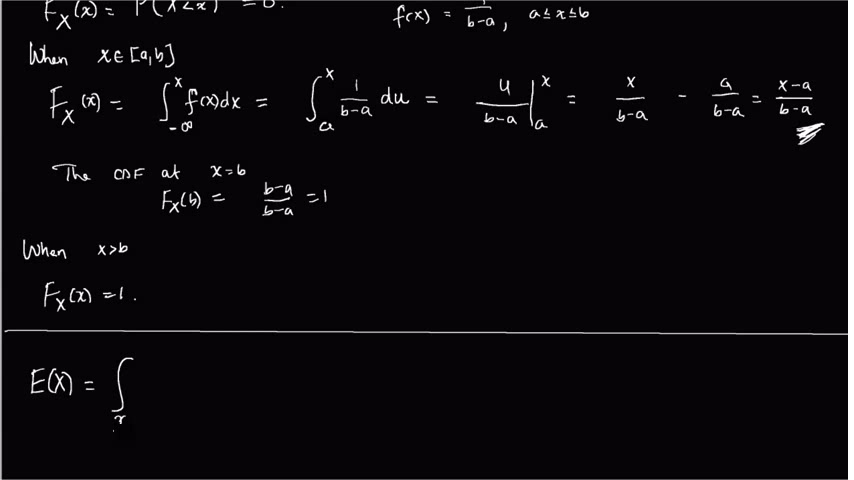 F_X(x) = P(X<x) = 0. f(x) = 1/(b-a), a ≤ x ≤ b
When x ∈ [a,b]
F_X(x) = ∫_{-∞}^{x} f(x)dx = ∫_{a}^{x} 1/(b-a) du = u/(b-a) |_{a}^{x} = x/(b-a) - a/(b-a) = (x-a)/(b-a)
The CDF at x=b
F_X(b) = (b-a)/(b-a) = 1
When x>b
F_X(x) = 1.
E(X) = ∫_x